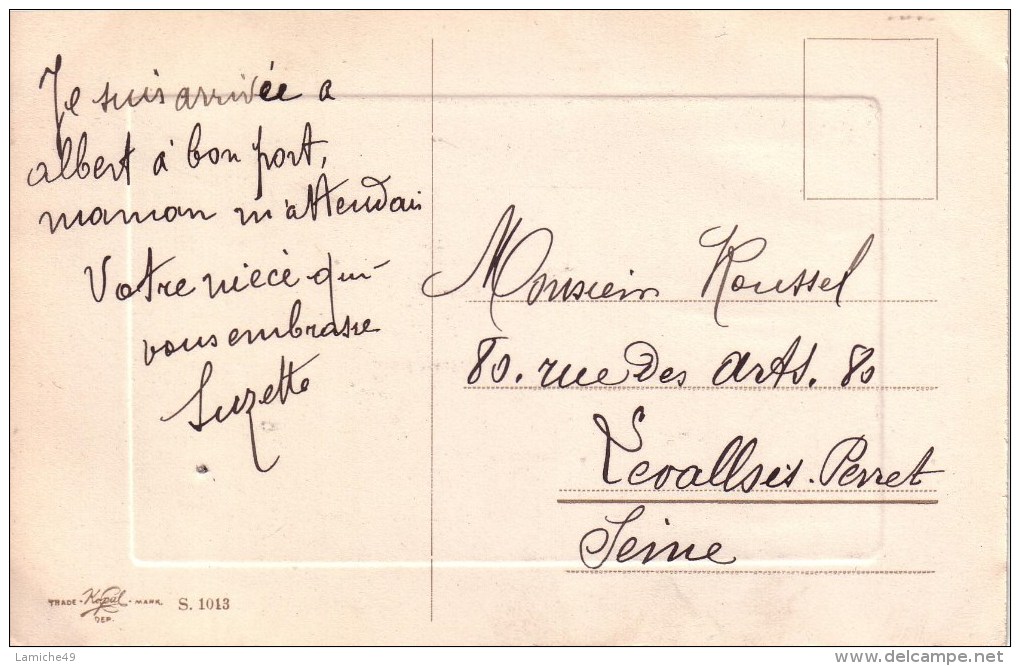 Je suis arrivée a
albert à bon port,
maman m'attendais
Votre nièce qui
vous embrasse
Suzette
Monsieur Roussel
80. rue des arts. 80
Levallois-Perret
Seine
TRADE - Kopal - MARK.
DEP.
S. 1013
Lamiche49
www.delcampe.net